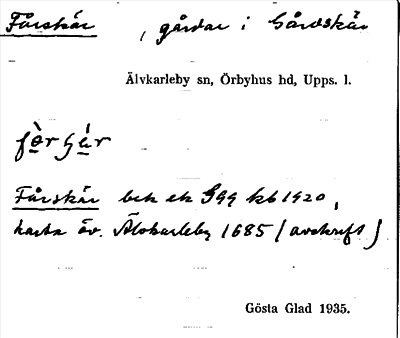 Fårskär, gårdar i Gårdskär
Älvkarleby sn, Örbyhus hd, Upps. l.
Fårskär bek ek G99 kb 1920,
karta öv. Älvkarleby 1685 (avskrift)
Gösta Glad 1935.